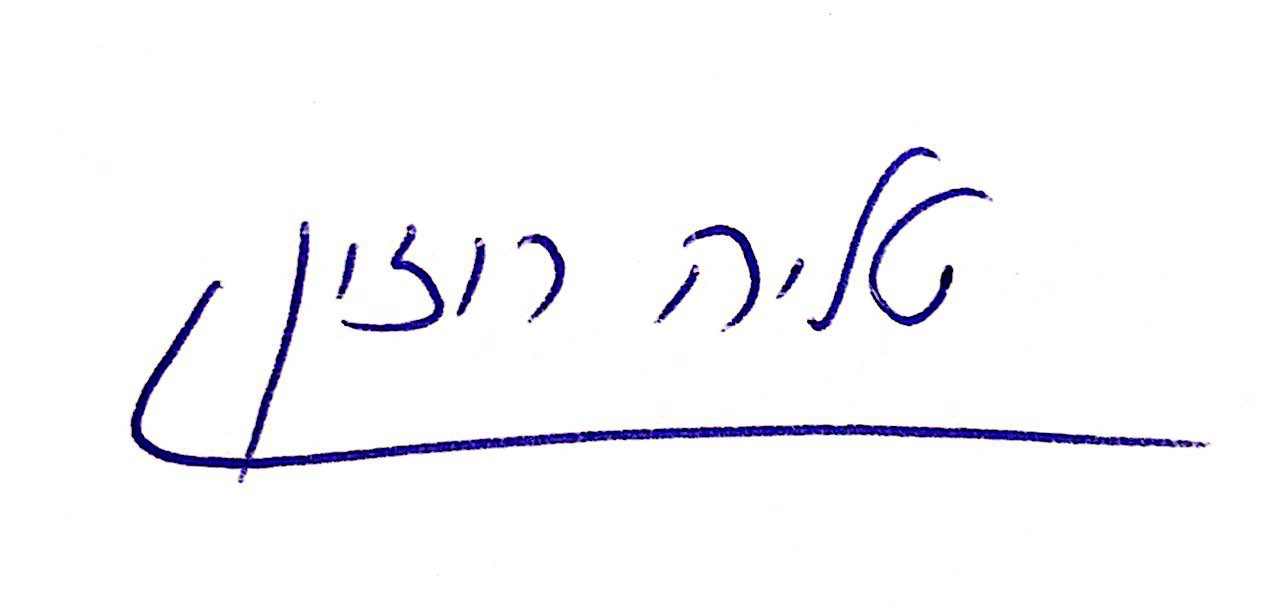 טליה רוזין